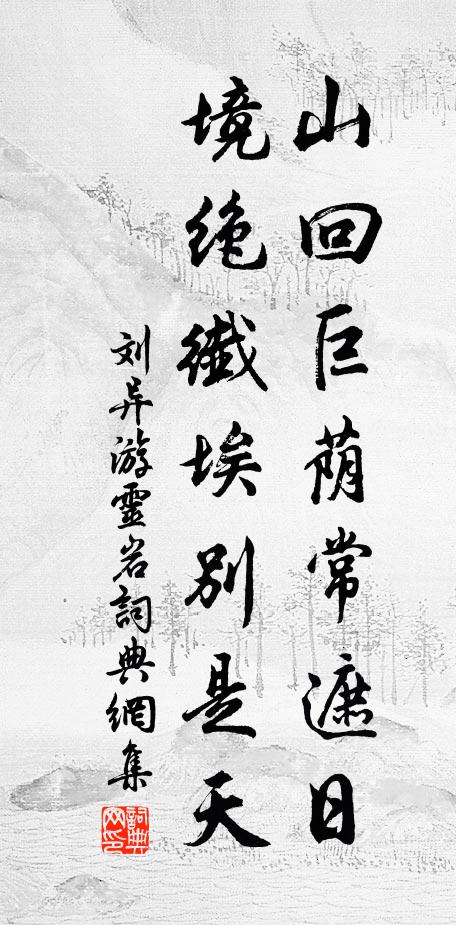 山回巨荫常遮日
境绝纤埃别是天
刘异游靈岩詞典網集
詞典
网印